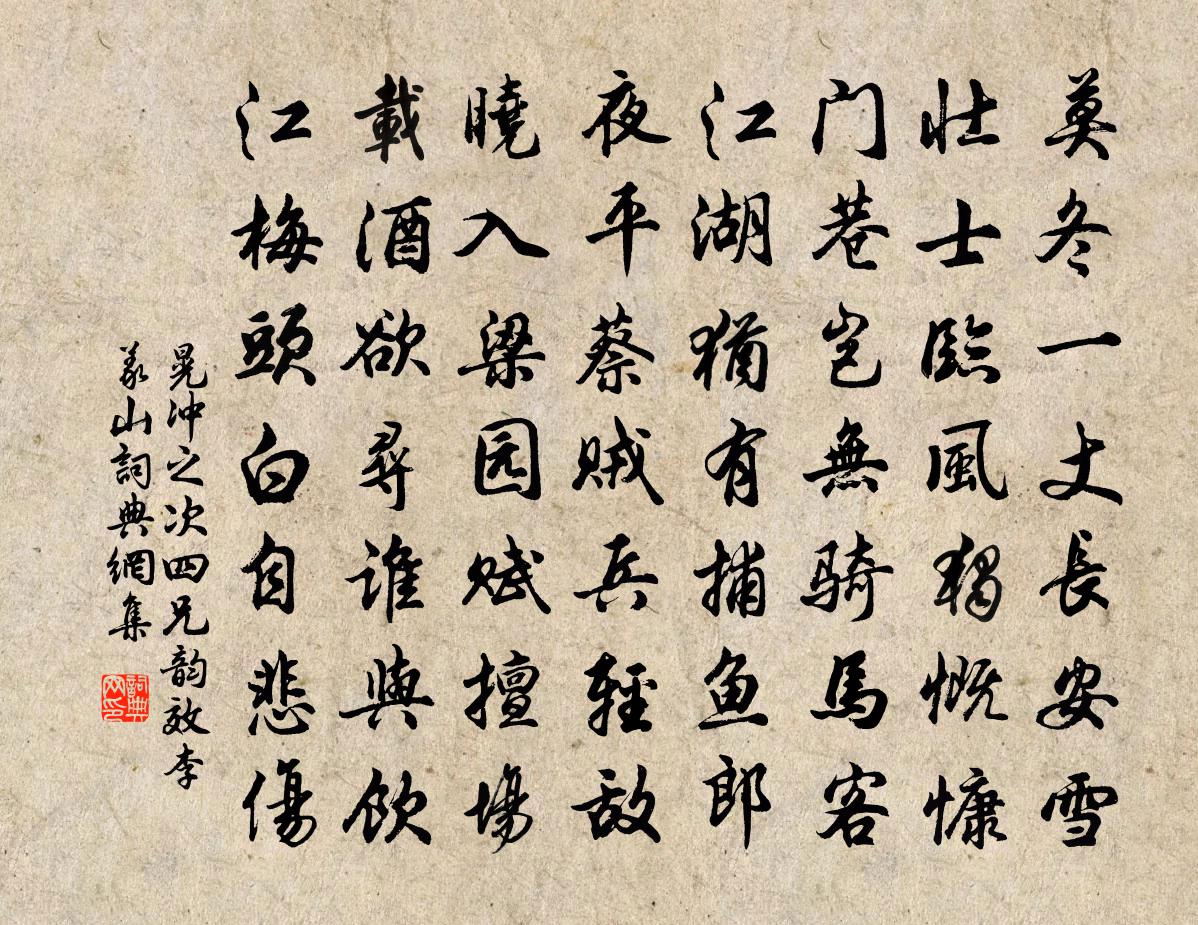 莫冬一丈長安雪
壯士臨風獨慨慷
门巷岂無騎馬客
江湖猶有捕鱼郎
夜平蔡賊兵輕敌
曉入梁园赋擅場
載酒欲尋誰與飲
江梅頭白自悲傷
晁冲之次四兄韵效李
義山詞典網集
詞典
网印